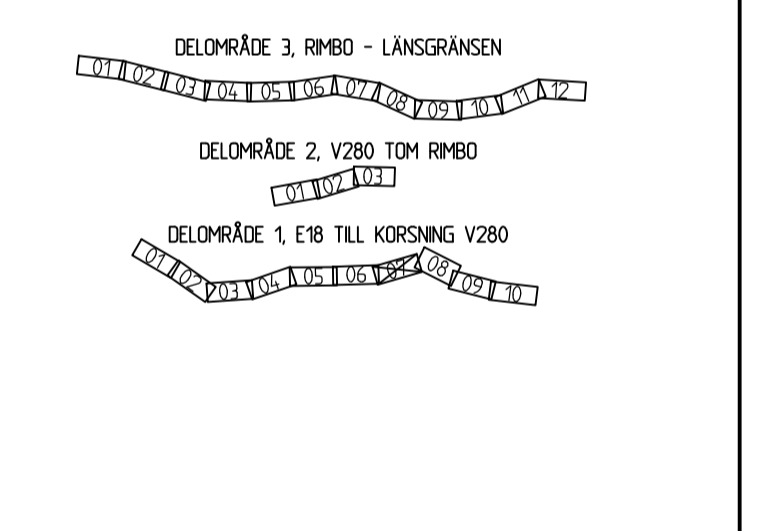 DELOMRÅDE 3, RIMBO - LÄNSGRÄNSEN
01 02 03 04 05 06 07 08 09 10 11 12
DELOMRÅDE 2, V280 TOM RIMBO
01 02 03
DELOMRÅDE 1, E18 TILL KORSNING V280
01 02 03 04 05 06 07 08 09 10